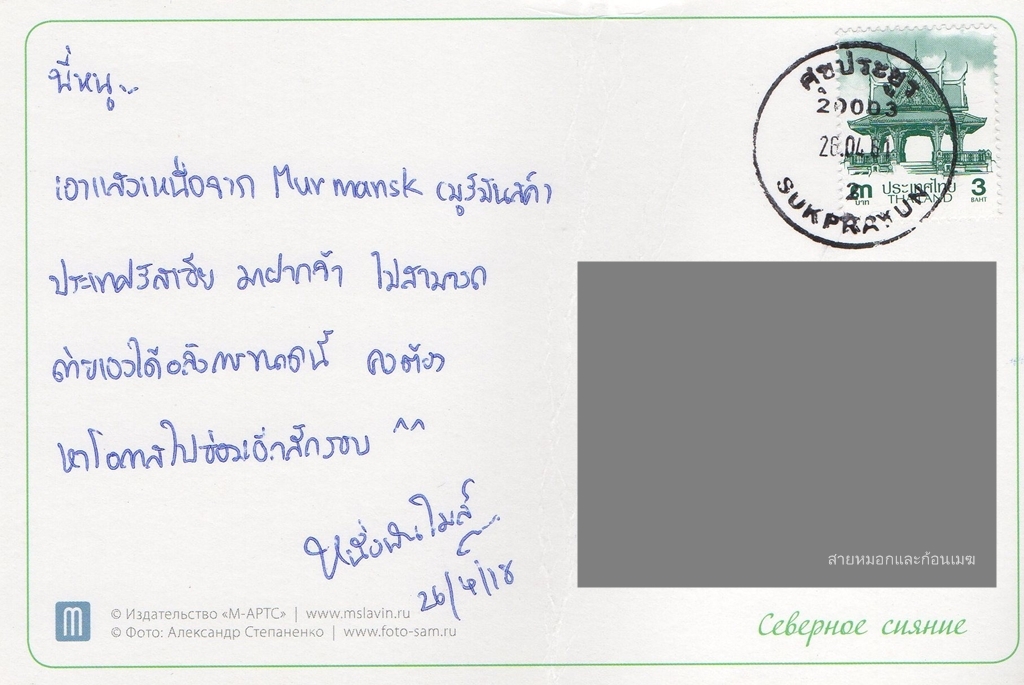 นี่หนู..
เอาแสงเหนือจาก Murmansk (มูร์มันสค์)
ประเทศรัสเซีย มาฝากจ้า ไม่สามารถ
ถ่ายเองได้อลังการขนาดนี้ คงต้อง
หาโอกาสไปซ่อมอีกสักรอบ ^^
หนึ่งพันไมล์
26/4/18
สุขประยูร
20003
26.04.61
2
SUKPRAYUN
๓ ประเทศไทย 3
บาท THAILAND BAHT
สายหมอกและก้อนเมฆ
m © Издательство «М-АРТС» | www.mslavin.ru
© Фото: Александр Степаненко | www.foto-sam.ru
Северное сияние